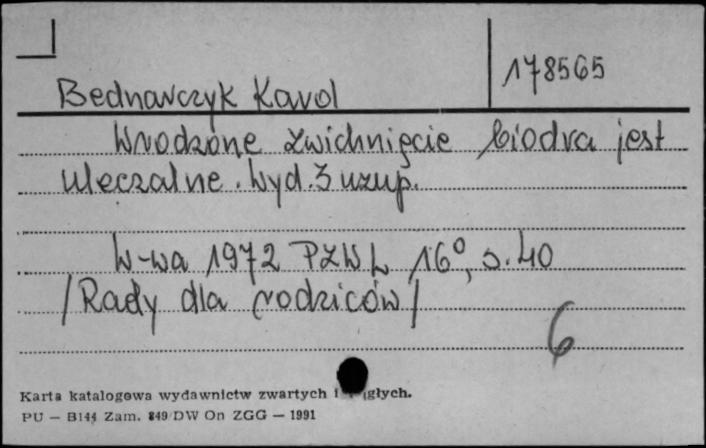 178565
Bednarczyk Karol
Wrodzone zwichnięcie biodra jest
uleczalne. Wyd. 3 uzup.
W-wa 1972 PZWL 16°, s. 40
/Rady dla rodziców/
6
Karta katalogowa wydawnictw zwartych i głych.
PU — B144 Zam. 849 DW On ZGG — 1991